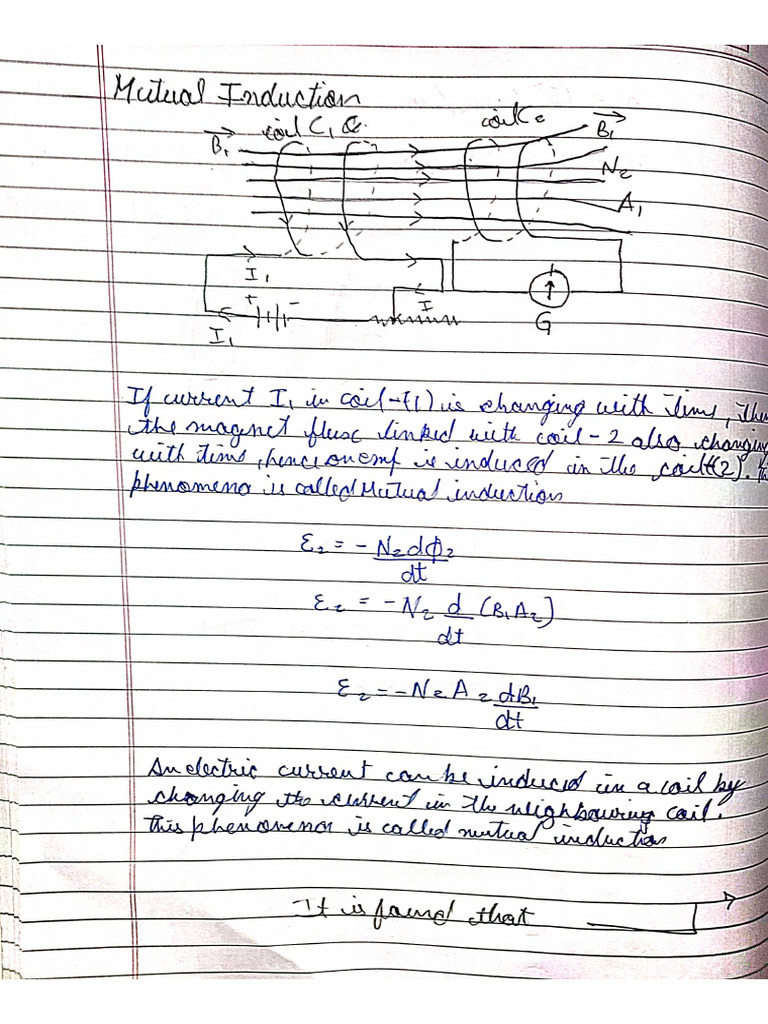 Mutual Induction
coil C1
coil C2
B⃗1
B⃗1
N2
A1
I1
+ -
I
I1
G
If current I1 in coil-(1) is changing with time, then
the magnet flux linked with coil-2 also changing
with time, hence an emf is induced in the coil(2).
phenomeno is called Mutual induction
ε2 = - N2 dΦ2 / dt
ε2 = - N2 d/dt (B1A2)
ε2 = - N2 A2 dB1 / dt
An electric current can be induced in a coil by
changing the current in the neighbouring coil.
This phenomenon is called mutual induction
It is found that